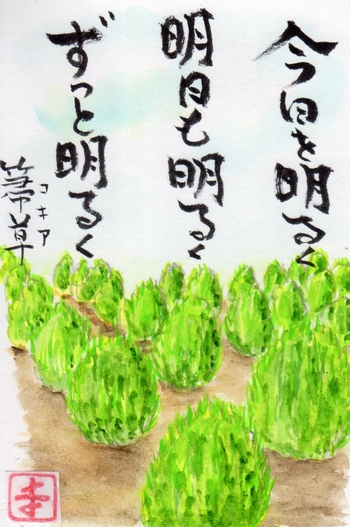 今日を明るく
明日も明るく
ずっと明るく
箒草
コキア